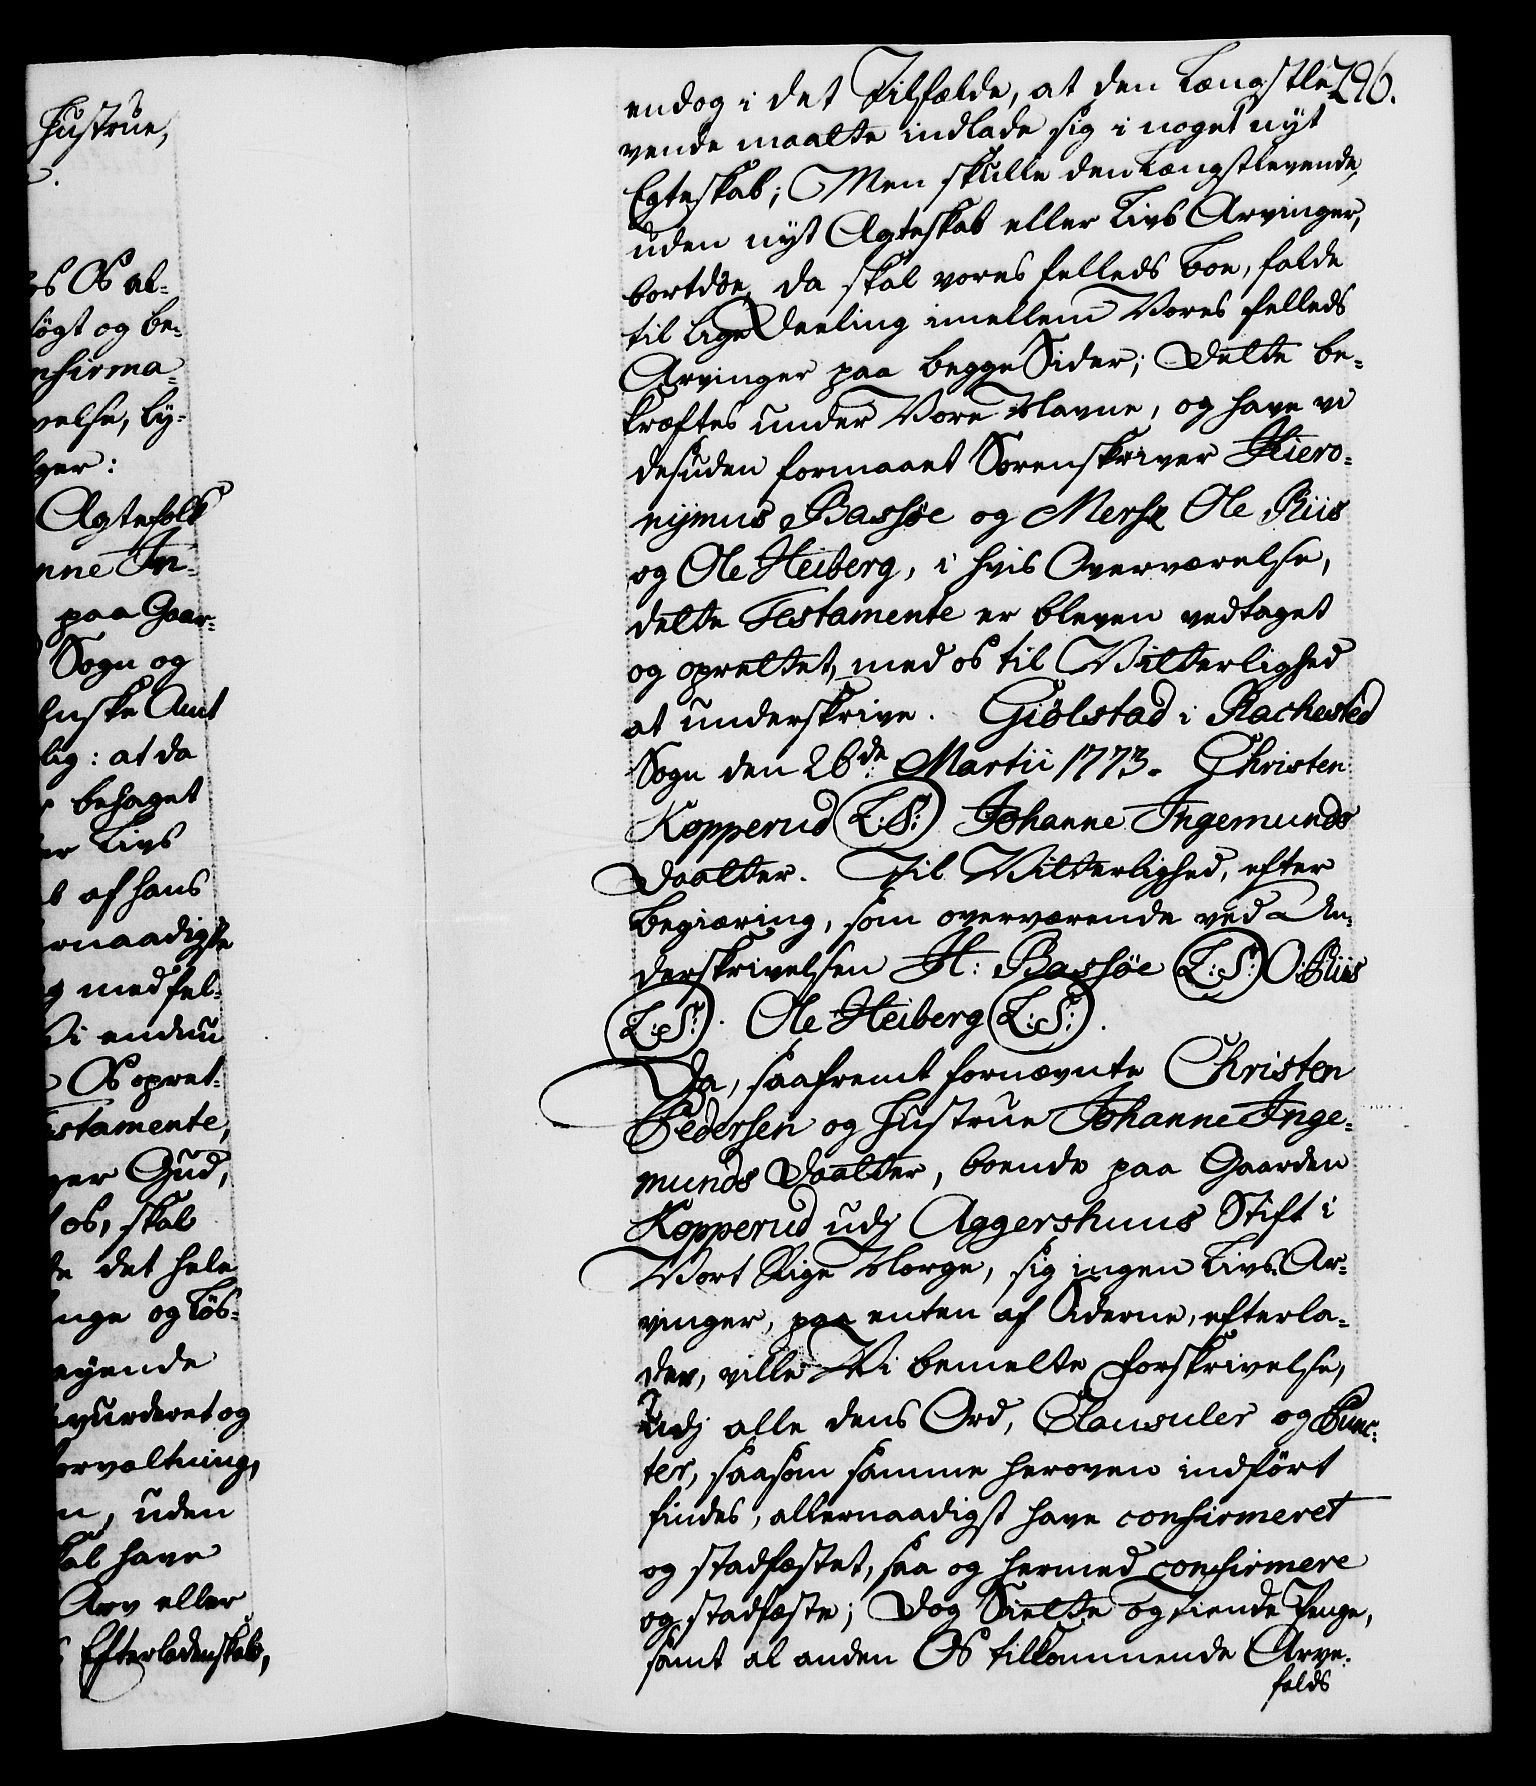 Hustrue,
os Os al-
søgt og be-
nfirma-
velse, ly-
ger:
Ægtefolk
nne In-
paa Gaar-
Sogn og
nske Amt
lig: at da
behaget
er Livs
af hans
rnaadigste
med fel-
Vi endnu
Os opret-
stamente,
ger Gud,
os, skal
det hele
nge og Løs-
eyende
vurderet og
orvaltning,
n, uden
kal have
Arv eller
Efterladenskab,
296.
endog i det Tilfælde, at den Længstle-
vende maatte indlade sig i noget nyt
Egteskab; Men skulle den Længstlevende,
uden nyt Ægteskab eller Livs Arvinger,
bortdøe, da skal vores felleds Boe, falde
til lige Deeling imellem Vores felleds
Arvinger paa begge Sider; Dette be-
kræftes under Vore Navne, og have vi
desuden formaaet Sorenskriver Hiero-
nijmus Bassøe og Mersr Ole Riis
og Ole Heiberg, i hvis Overværelse,
dette Testamente er bleven vedtaget
og oprettet, med os til Vitterlighed
at underskrive. Giølstad i Rachested
Sogn den 26de Martii 1773. Christen
Kopperud (L:S:) Johanne Ingemunds
Daatter. Til Vitterlighed, efter
Begiæring, som overværende ved Un-
derskrivelsen H: Bassøe (L:S:) O: Riis
(L:S:). Ole Heiberg (L:S:).
Da, saafremt fornævnte Christen
Pedersen og Hustrue Johanne Inge-
munds Daatter, boende paa Gaarden
Kopperud udj Aggershuus Stift i
Vort Rige Norge, sig ingen Livs-Ar-
vinger, paa enten af Siderne, efterla-
der, ville Vi bemelte Forskrivelse,
Udj alle dens Ord, Clausuler og Punc-
ter, saasom samme heroven indført
findes, allernaadigst have confirmeret
og stadfæstet, saa og hermed confirmere
og stadfæste; Dog Siette og Tiende Penge,
samt al anden Os tilkommende Arve-
falds